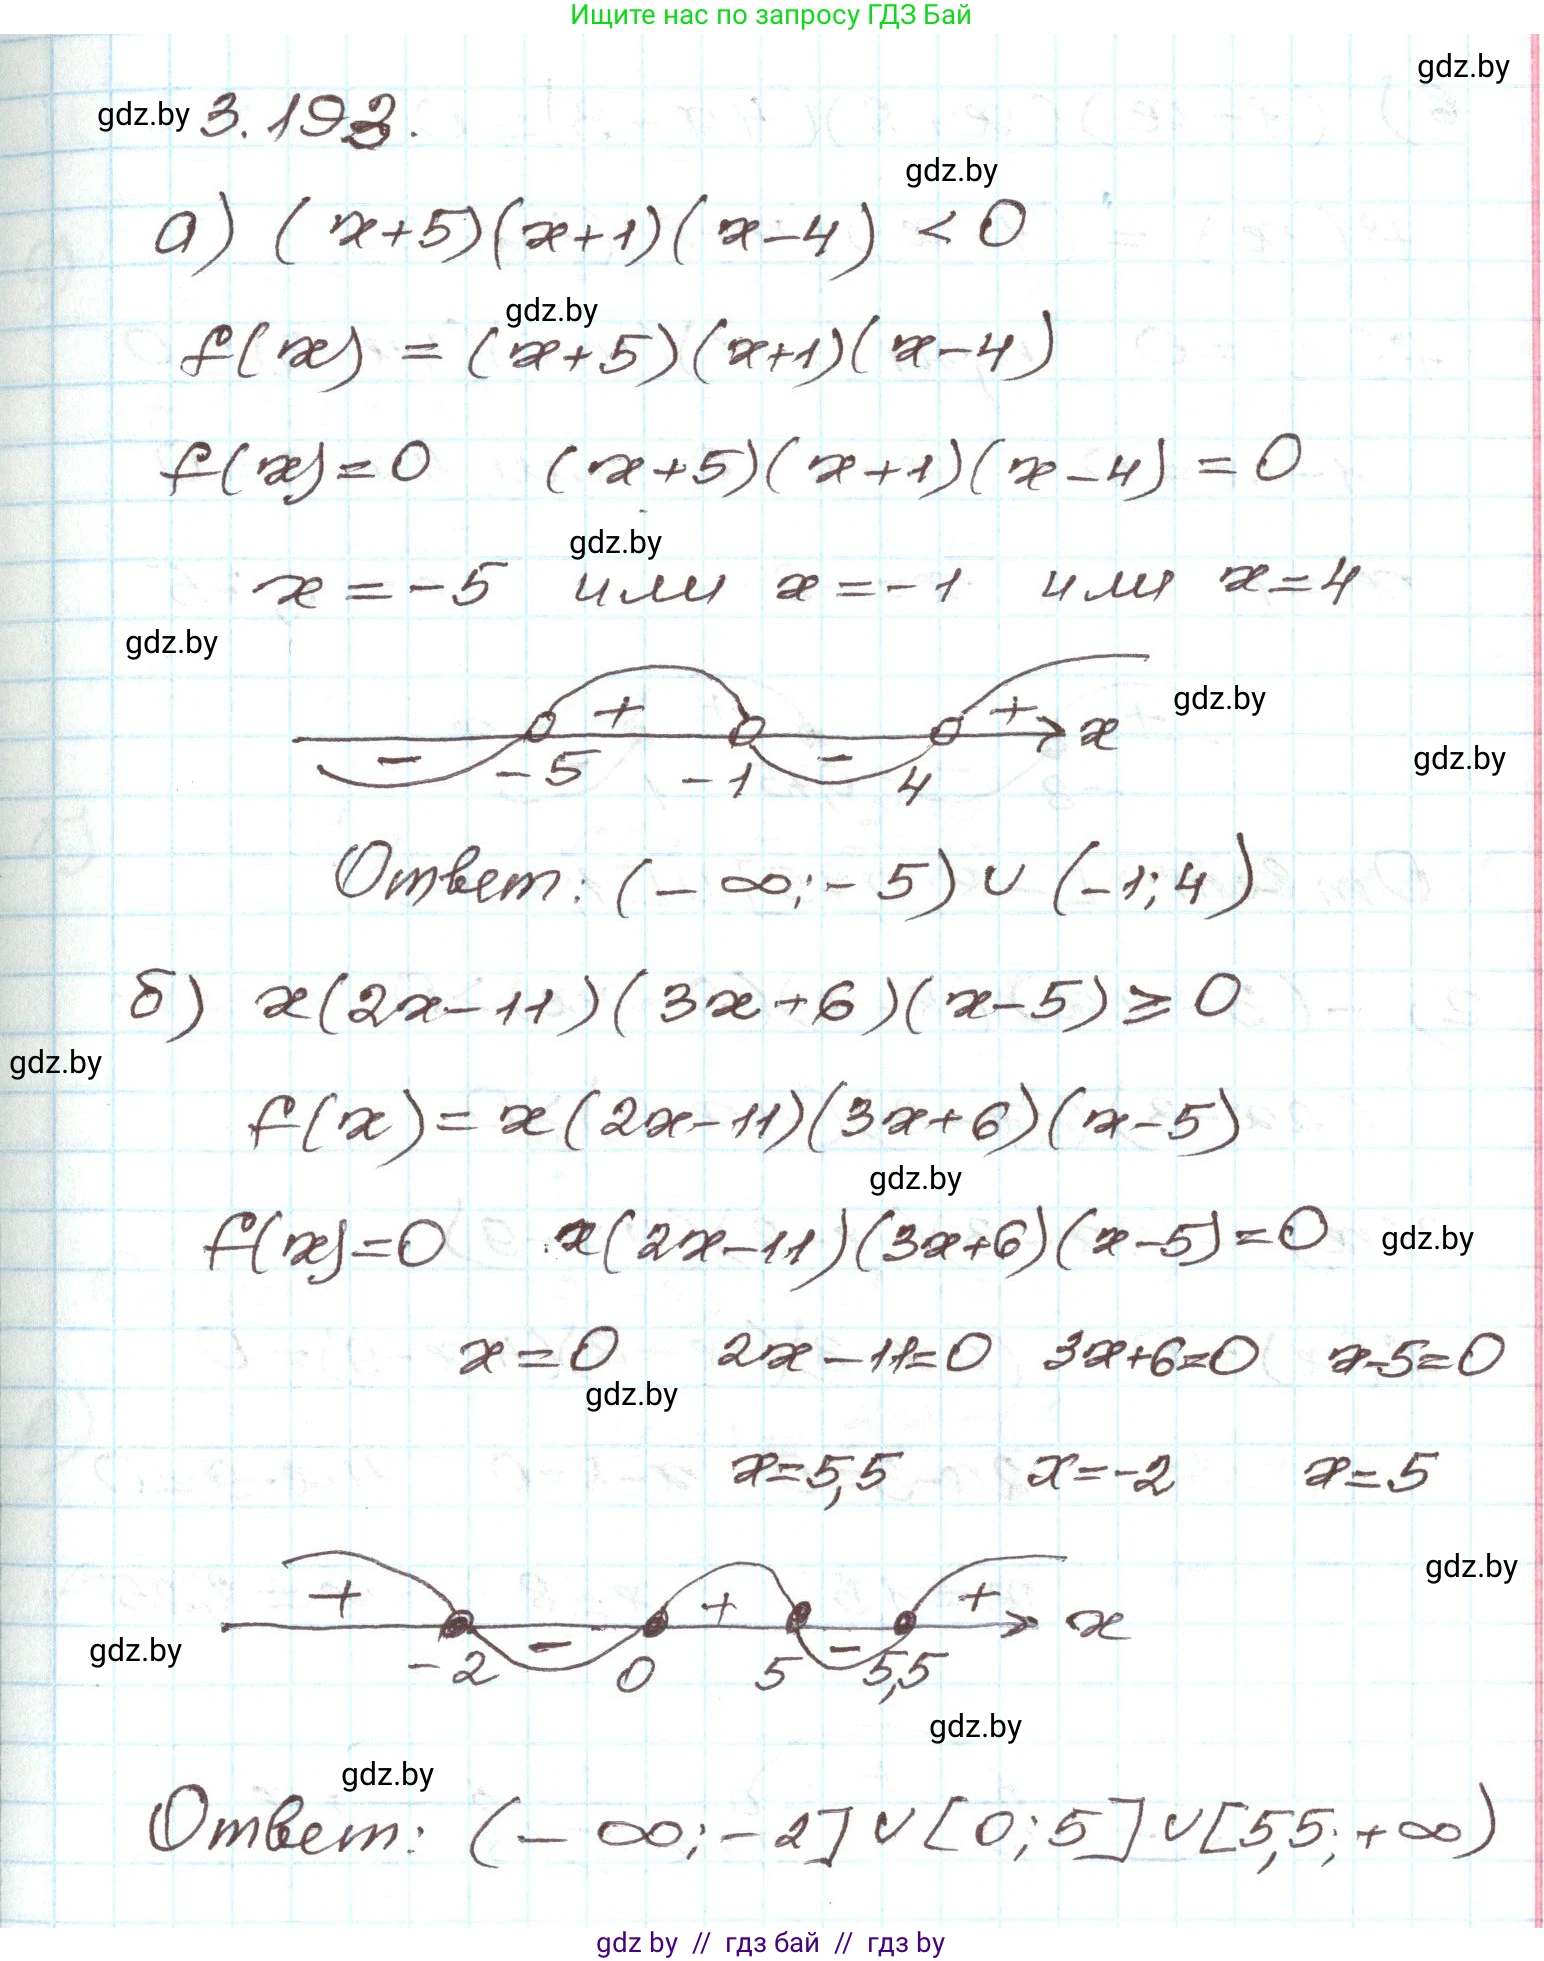 Ищите нас по запросу ГДЗ Бай
gdz.by
gdz.by 3.193.
gdz.by
а) (x+5)(x+1)(x-4) < 0
gdz.by
f(x) = (x+5)(x+1)(x-4)
f(x)=0 (x+5)(x+1)(x-4) = 0
gdz.by
x = -5 или x = -1 или x = 4
gdz.by
gdz.by
+ + x
gdz.by
- -5 -1 - 4
Ответ: (-∞; -5) ∪ (-1; 4)
б) x(2x-11)(3x+6)(x-5) ≥ 0
gdz.by
f(x) = x(2x-11)(3x+6)(x-5)
gdz.by
f(x)=0 x(2x-11)(3x+6)(x-5)=0 gdz.by
x=0 2x-11=0 3x+6=0 x-5=0
gdz.by
x=5,5 x=-2 x=5
gdz.by
+ + + x
gdz.by
-2 - 0 5 - 5,5
gdz.by
gdz.by
Ответ: (-∞; -2] ∪ [0; 5] ∪ [5,5; +∞)
gdz by // гдз бай // гдз by